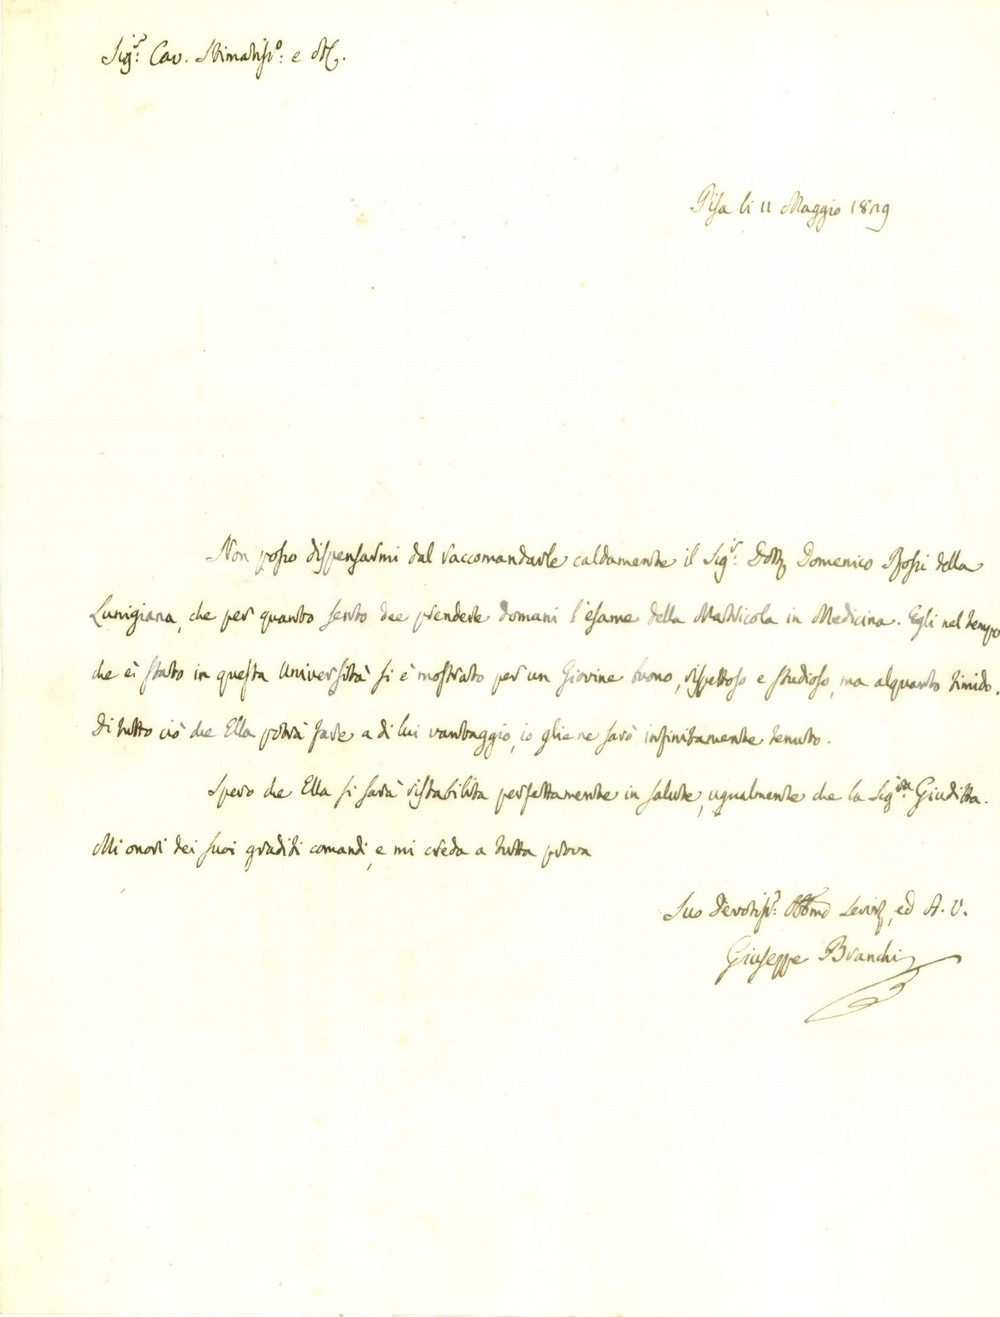 Sig.r Cav. Stimatiss.o e A.C.
Pisa li 11 Maggio 1829
Non posso dispensarmi dal raccomandarle caldamente il Sig.r Dott. Domenico Rossi della
Lunigiana, che per quanto sento dee prendere domani l'esame della Matricola in Medicina. Egli nel tempo
che è stato in questa Università si è mostrato per un Giovine buono, rispettoso e studioso, ma alquanto timido.
Di tutto ciò che Ella potrà fare a di lui vantaggio, io gliene sarò infinitamente tenuto.
Spero che Ella si sarà ristabilita perfettamente in salute, ugualmente che la Sig.ra Giuditta.
Mi onori dei suoi graditi comandi, e mi creda a tutta prova
Suo Devotiss.o Obbmo Servit, ed A. V.
Giuseppe Branchi